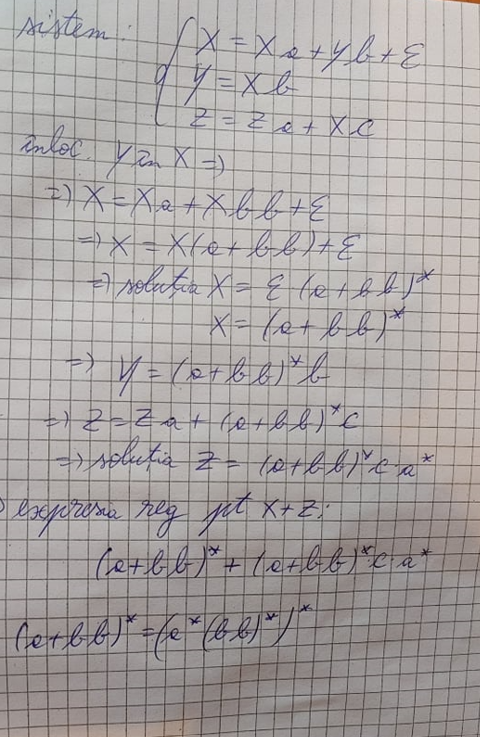 sistem: { X = Xa + yb + ε
y = Xb
z = za + Xc
înloc. y în X =)
=) X = Xa + Xbb + ε
=) X = X(a+bb) + ε
=) soluția X = ε (a+bb)*
X = (a+bb)*
=) y = (a+bb)*b
=) z = za + (a+bb)*c
=) soluția z = (a+bb)*c·a*
expresia reg pt X+z:
(a+bb)* + (a+bb)*c·a*
(a+bb)* = (a*(bb)*)*